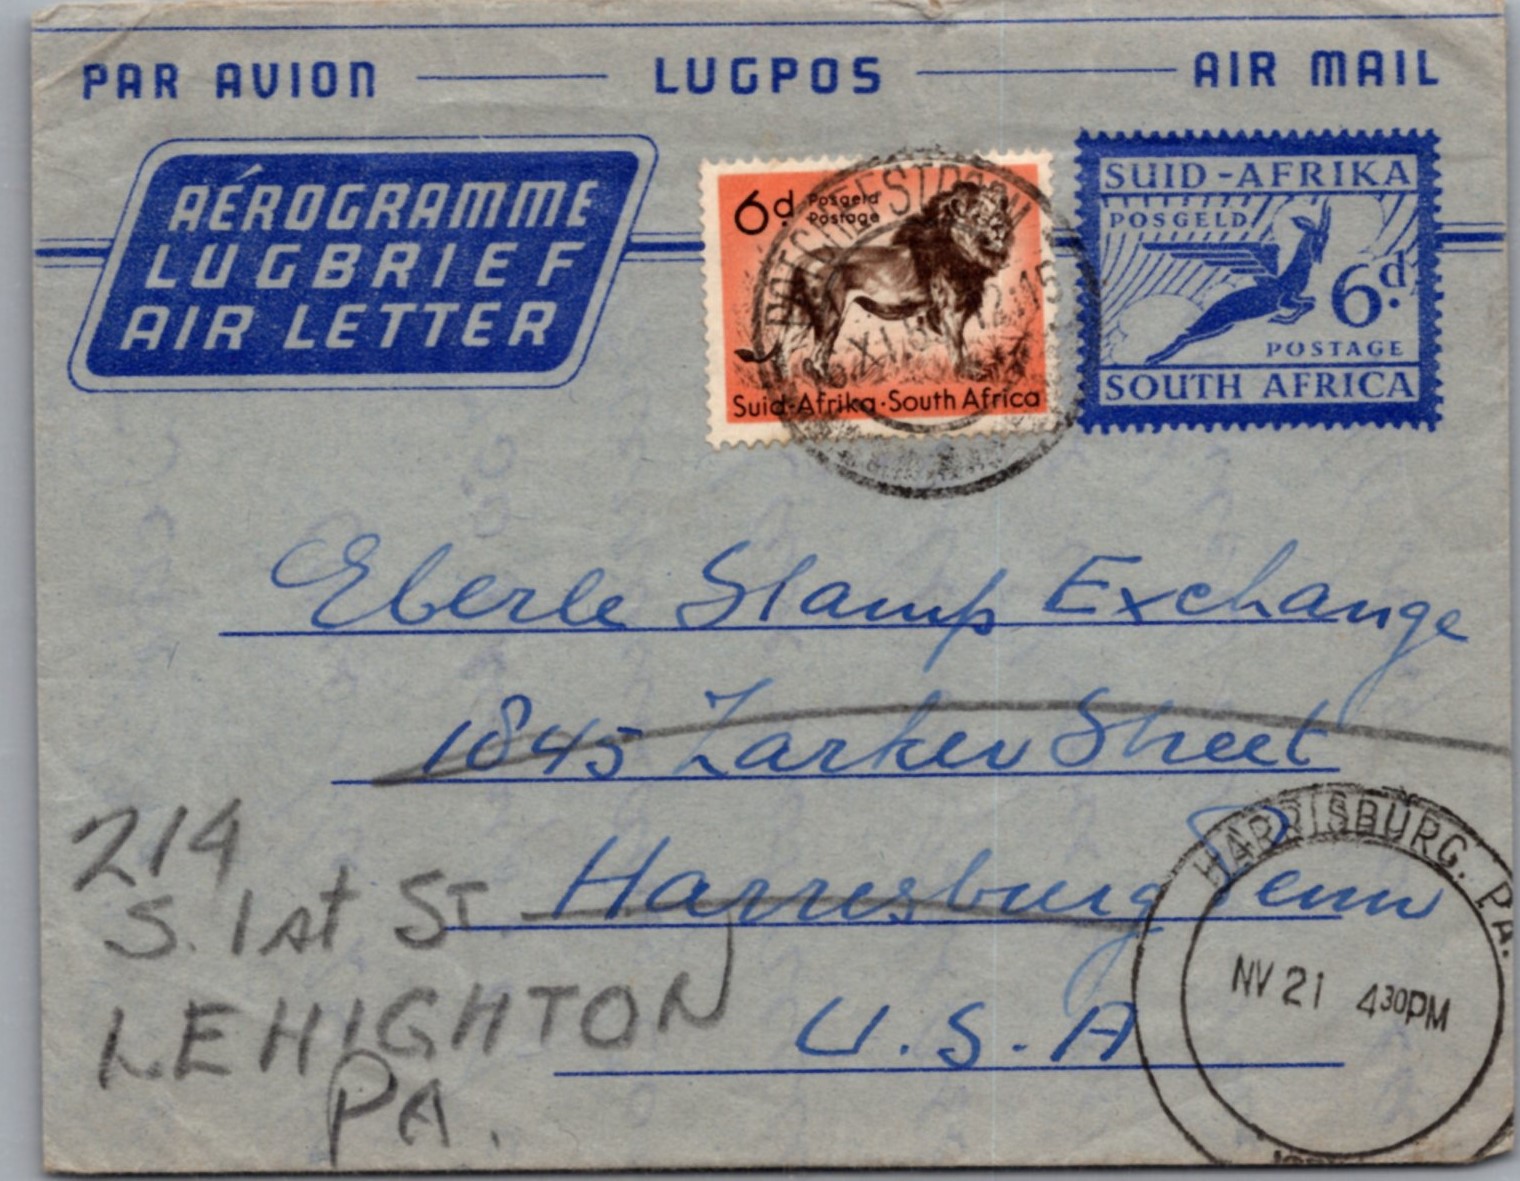 PAR AVION LUGPOS AIR MAIL
AÉROGRAMME
LUGBRIEF
AIR LETTER
6d Posgeld
Postage
Suid-Afrika·South Africa
POTCHEFSTROOM
SUID-AFRIKA
POSGELD
6d
POSTAGE
SOUTH AFRICA
Eberle Stamp Exchange
1845 Zarker Street
Harresburg Penn
U.S.A
214
S. 1st ST
LEHIGHTON
PA.
HARRISBURG. PA.
NV 21 430PM